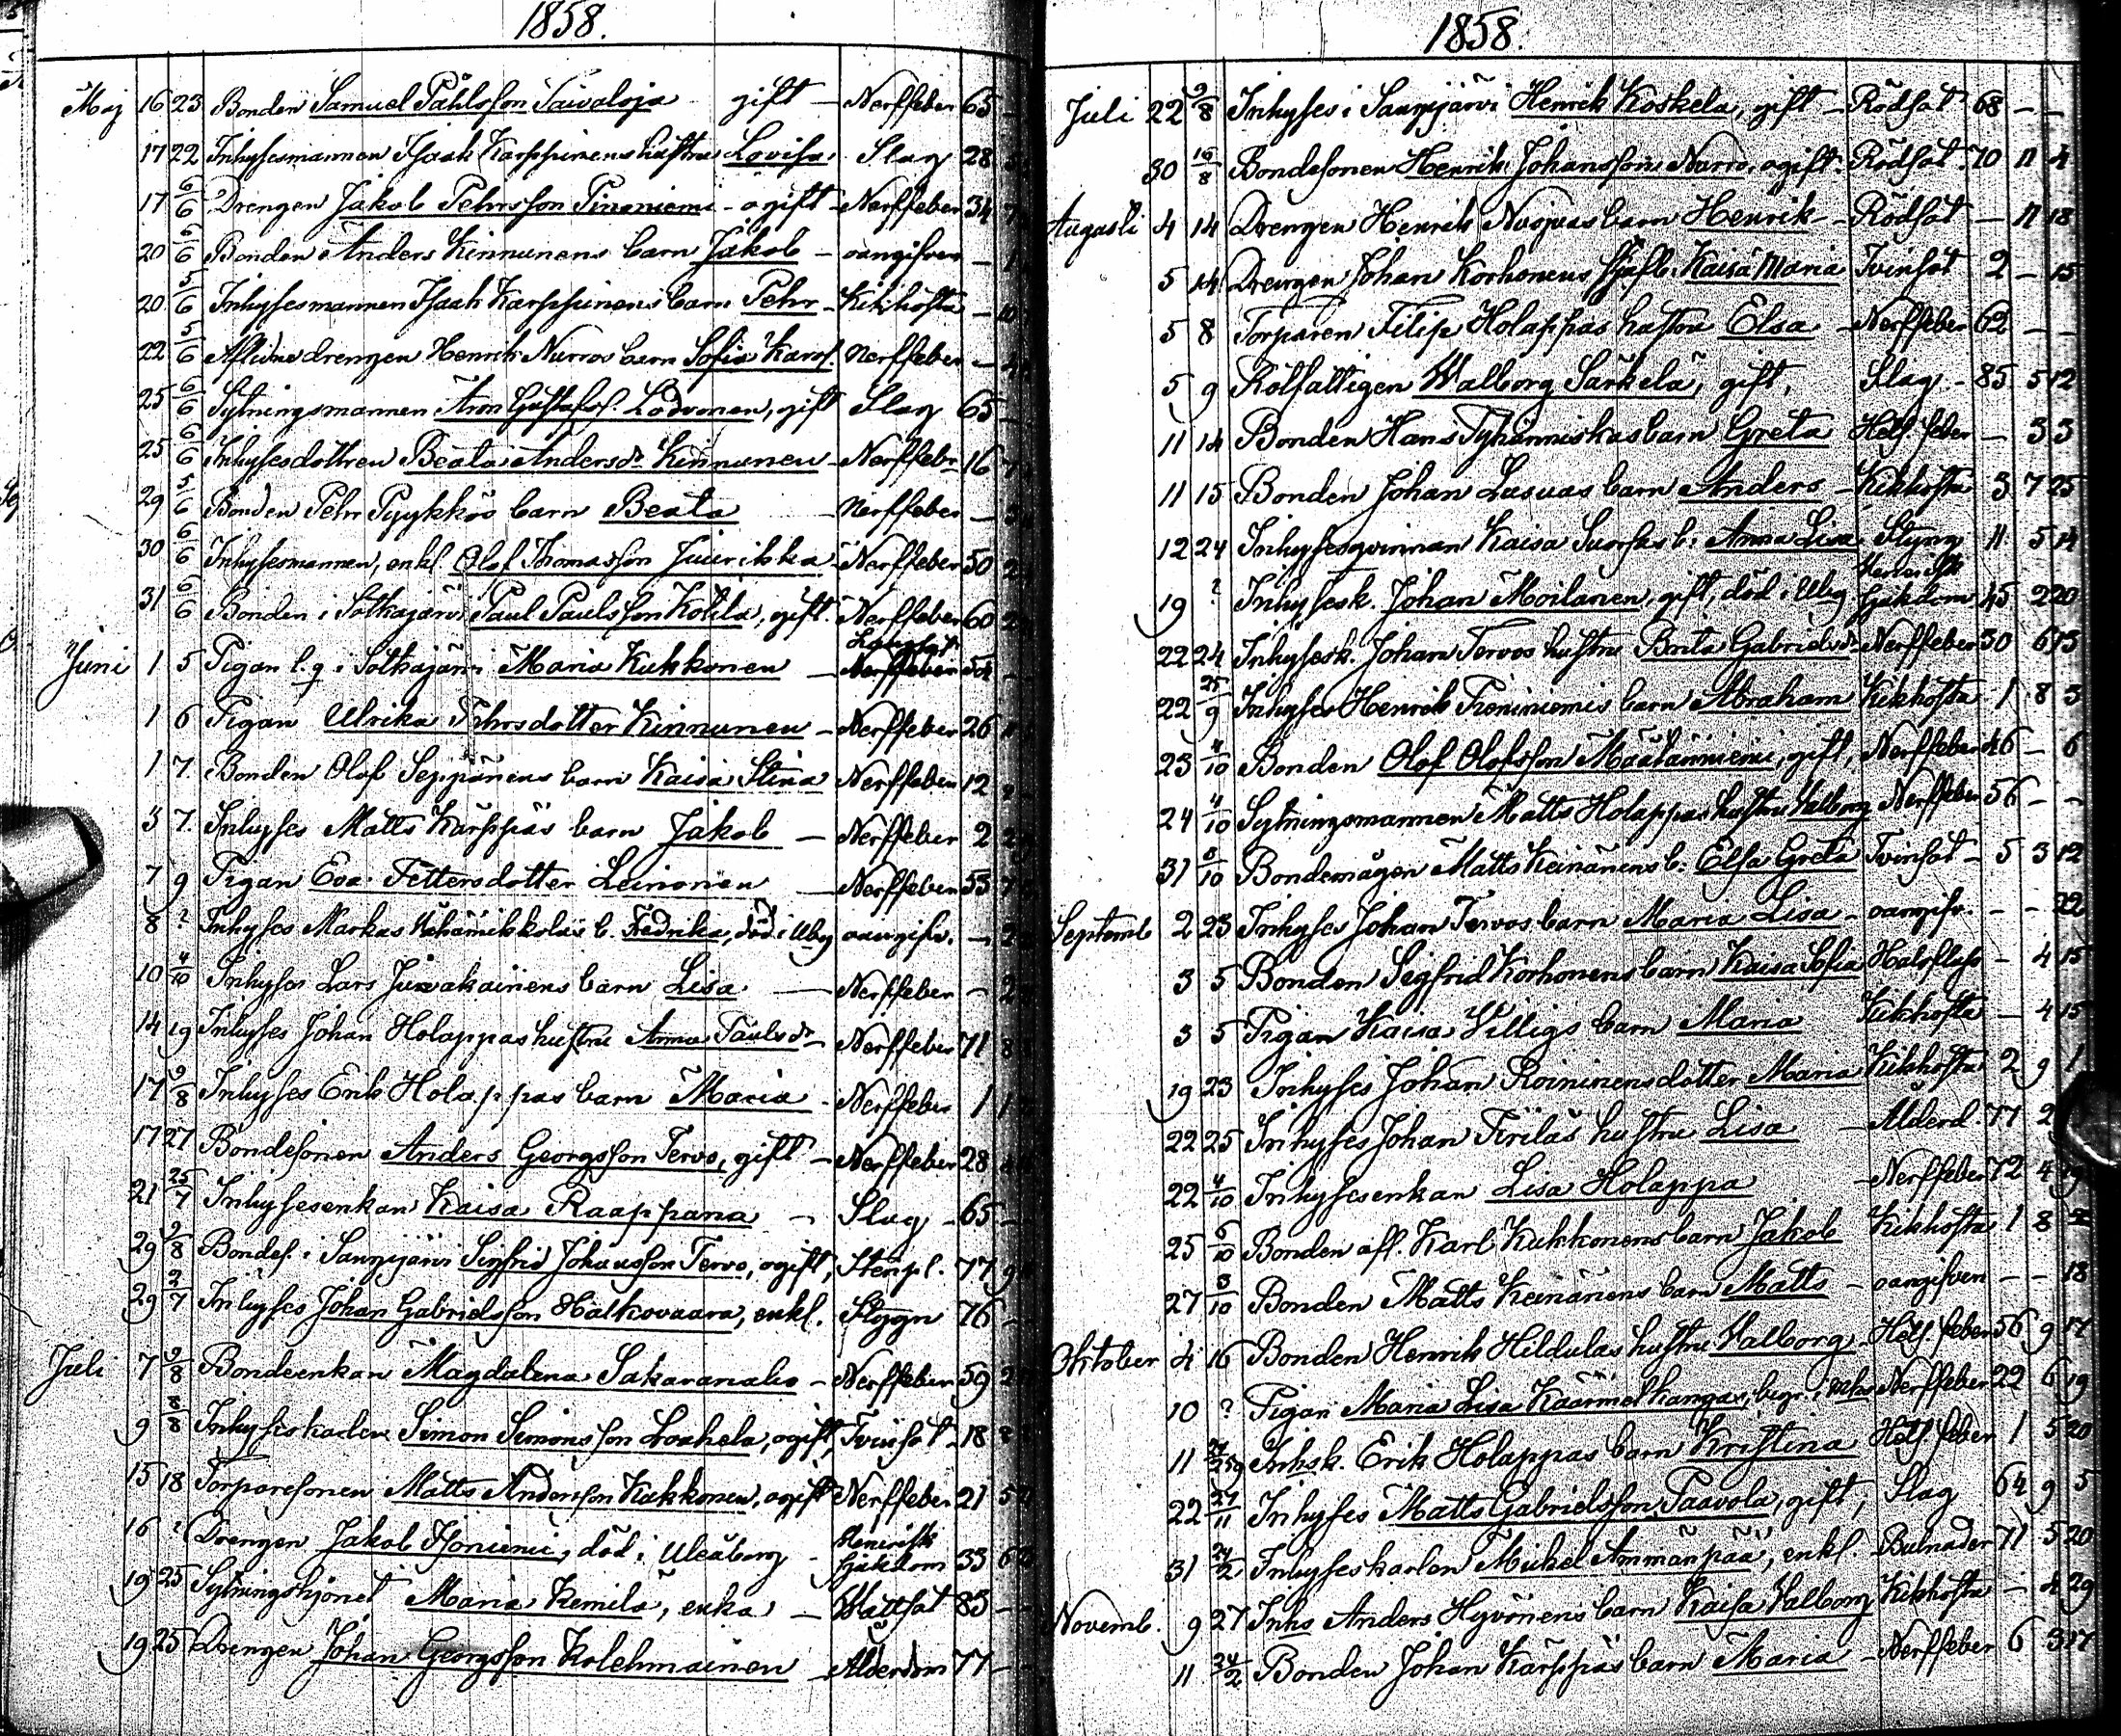 1858.
Maj 16 23 Bonden Samuel Påhlsson Taivaloja gift - Nerffeber 65
17 22 Inhysesmannen Isaak Karppinens hustru Lovisa Slag 28
17 6/6 Drengen Jakob Pehrsson Pinoniemi - ogift - Nerffeber 34
20 6/6 Bonden Anders Kinnunens barn Jakob - oangifven -
20 5/6 Inhysesmannen Isaak Karppinens barn Pehr - Kikhosta -
22 5/6 Aflidne drengen Henrik Nurros barn Sofia Karol. Nerffeber -
25 6/6 Sytningsmannen Aron Gustafss. Lodvonen, gift Slag 65
25 6/6 Inhysesdottren Beata Andersdr Kinnunen - Nerffebr 16
29 5/6 Bonden Pehr Pyykkös barn Beata - Nerffeber -
30 6/6 Inhysesmannen, enkl. Olof Thomasson Juurikka - Nerffeber 50
31 6/6 Bonden i Sotkajärvi Paul Paulsson Kotila, gift. Nerffeber 60
Juni 1 5 Pigan l. g. i Sotkajärvi Maria Kukkonen - Nerffeber 54
1 6 Pigan Ulrika Pehrsdotter Kinnunen - Nerffeber 26
1 7. Bonden Olof Seppänens barn Kaisa Stina Nerffeber 12
3 7. Inhyses Matts Kärppäs barn Jakob - Nerffeber 2
7 9 Pigan Eva Pettersdotter Leinonen - Nerffeber 53
8 ? Inhyses Markus b. Fredrika, död i Ulbg oangifv. -
10 4/10 Inhyses Lars Juvakainens barn Lisa - Nerffeber -
14 19 Inhyses Johan Holappas hustru Anna Paulsdr - Nerffeber 71
17 9/8 Inhyses Erik Holappas barn Maria - Nerffeber 1
17 27 Bondesonen Anders Georgsson Tervo, gift - Nerffeber 28
21 25/7 Inhysesenkan Kaisa Raappana - Slag - 65
29 9/8 Bondes. i Sangijärvi Sigfrid Johansson Tervo, ogift, Stenpl. 77
29 2/7 Inhyses Johan Gabrielsson Halkovaara, enkl. Styggn 76
Juli 7 9/8 Bondeenkan Magdalena Sakaranaho - Nerffeber 59
9 8/8 Inhyseskarlen Simon Simonsson Loukela, ogift, Tvinsot - 18
15 18 Torparesonen Matts Andersson Kukkonen, ogift Nerffeber 21
16 ? Drengen Jakob Isoniemi, död i Uleåborg - Venerisk sjukdom 33
19 25 Sytningshjonet Maria Kemilä, enka - Wattsot 83
19 25 Drengen Johan Georgsson Kolehmainen - Ålderdom 77
1858.
Juli 22 9/8 Inhyses i Sangijärvi Henrik Koskela, gift - Rödsot 68 - -
30 16/8 Bondesonen Henrik Johansson Nurro, ogift - Rödsot 70 11 4
Augusti 4 14 Drengen Henrik Nuojuas barn Henrik - Rödsot - 11 18
5 14 Drengen Johan Korhonens Kaisa Maria Tvinsot 2 - 15
5 8 Torparen Filip Holappas hustru Elsa - Nerffeber 62 - -
5 9 Rotfattigen Walborg Särkelä, gift, Slag - 85 5 12
11 14 Bonden Hans Tyhänniskas barn Greta Hetf. feber - 3 3
11 15 Bonden Johan Lasuas barn Anders - Kikhosta 3 7 25
12 24 Inhysesqvinnan Kaisa Suorsas b. Anna Lisa Styng 11 5 14
19 ? Inhysesk. Johan Moilanen, gift, död i Ulbg Venerisk sjukdom 45 2 20
22 24 Inhysesk. Johan Tervos hustru Brita Gabrielsdr - Nerffeber 30 6 13
22 25/9 Inhyses Henrik Pieniniemis barn Abraham Kikhosta 1 8 3
23 4/10 Bonden Olof Olofsson Määtänniemi, gift, Nerffeber 46 - 6
24 4/10 Sytningsmannen Matts Holappas hustru Valborg Nerffeber 56 - -
31 8/10 Bondemågen Matts Keinänens b. Elsa Greta Tvinsot - 5 3 12
Septemb 2 23 Inhyses Johan Tervos barn Maria Lisa - oangifv. - - 22
3 5 Bonden Sigfrid Korhonens barn Kaisa Sofia Halsfluss - 4 15
3 5 Pigan Kaisa Villigs barn Maria Kikhosta - 4 15
19 23 Inhyses Johan Roininens dotter Maria Kikhosta 2 9 1
22 25 Inhyses Johan Tirilä's hustru Lisa - Ålderd. 77 2
22 4/10 Inhysesenkan Lisa Holappa - Nerffeber 72 4 19
25 6/10 Bonden afl. Karl Kukkonens barn Jakob Kikhosta 1 8
27 3/10 Bonden Matts Keinänens barn Matts - oangifven - - 18
Oktober 4 16 Bonden Henrik Hildulas hustru Valborg - Hetf. feber 56 9 17
10 ? Pigan Maria Lisa Käärmelkangas, begr. i Nerffeber 22 6 19
11 Inhsk. Erik Holappas barn Kristina Hetf feber 1 5 20
22 21/11 Inhyses Matts Gabrielsson Paavola, gift, Slag 64 9 5
31 24/2 Inhyseskarlen Mickel Ämmänpää, enkl. - Bulnader 71 5 20
Novemb. 9 27 Inhs Anders Hyvönens barn Kaisa Valborg Kikhosta - 4 29
11 24/2 Bonden Johan Kärppäs barn Maria - Nerffeber 6 3 17